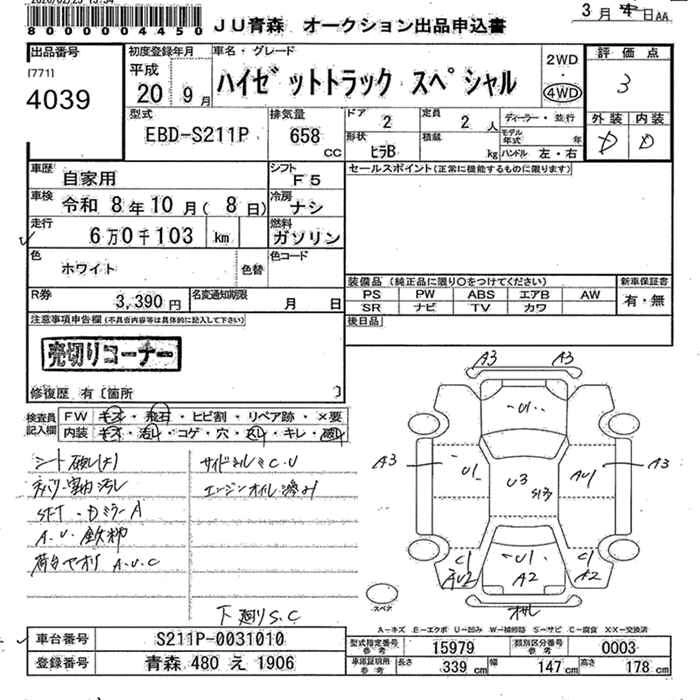 JU青森 オークション出品申込書
800000004450
3月 日AA
出品番号
[771]
4039
初度登録年月
平成
20 9月
車名・グレード
ハイゼットトラック スペシャル
2WD
・
4WD
評価点
3
外装 内装
D D
型式
EBD-S211P
排気量
658
CC
ドア
2
定員
2 人
形状
ヒラB
積載
kg
ディーラー・並行
モデル年式 年
ハンドル 左・右
車歴
自家用
シフト
F5
セールスポイント(正常に機能するものに限ります)
車検
令和 8年10月(8日)
冷房
ナシ
走行
6万0千103 km
燃料
ガソリン
色
ホワイト
色替
色コード
装備品(純正品に限り○をつけてください)
新車保証書
PS PW ABS エアB AW
有・無
SR ナビ TV カワ
後日品
R券
3,390円
名変通知期限
月 日
注意事項申告欄(不具合内容等は具体的に記入して下さい)
売切りコーナー
修復歴 有〔箇所 〕
検査員
記入欄
FW キズ・飛石・ヒビ割・リペア跡・×要
内装 キズ・汚れ・コゲ・穴・スレ・キレ・破れ
A3 A3
U1
A3 U1 U3 S13 AU1 A3
C1 AU2 U1 A2 C1 A2
スペア
A.U.C
下廻りS.C
A-キズ E-エクボ U-凹み W-補修跡 S-サビ C-腐食 XX-交換済
車台番号
S211P-0031010
型式指定番号
参考
15979
類別区分番号
参考
0003
登録番号
青森 480 え 1906
車庫証明用
参考
長さ
339cm
幅
147cm
高さ
178cm